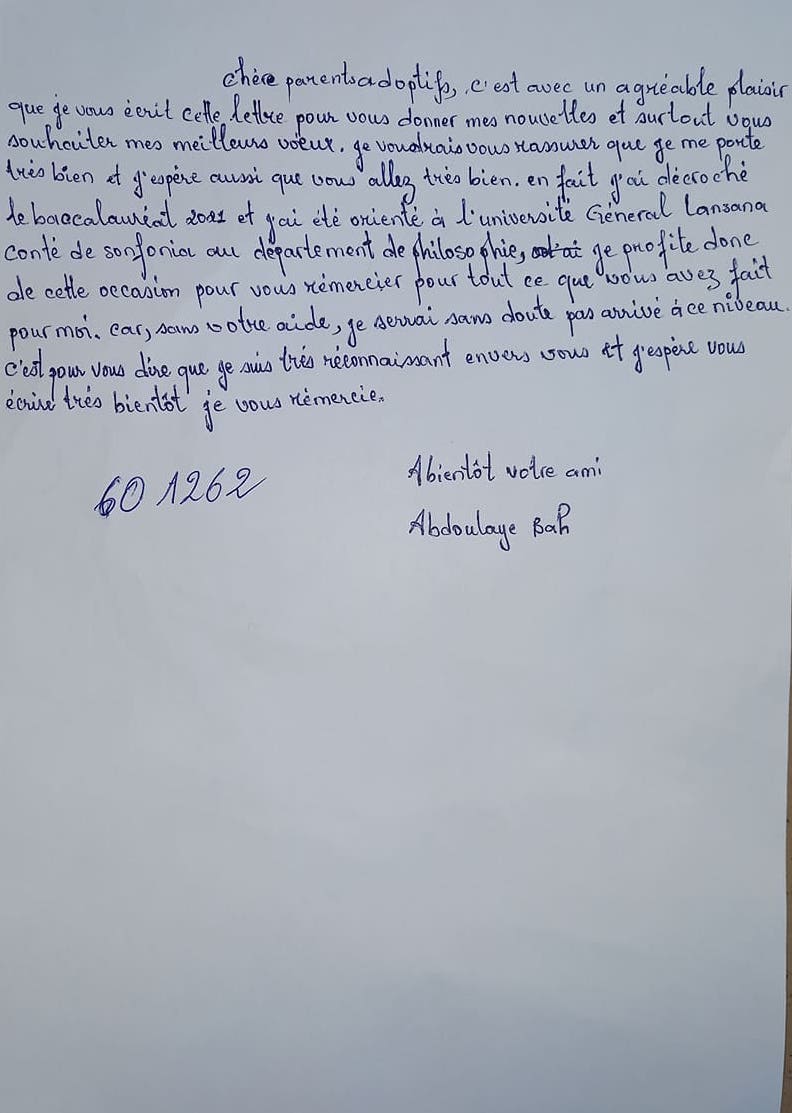 chère parents adoptifs, c'est avec un agréable plaisir
que je vous écrit cette lettre pour vous donner mes nouvelles et surtout vous
souhaiter mes meilleurs voeux. je voudrais vous rassurer que je me porte
très bien et j'espère aussi que vous allez très bien. en fait j'ai décroché
le baccalauréat 2021 et j'ai été orienté à l'université Géneral lansana
conté de sonfonia au département de philosophie, je profite donc
de cette occasion pour vous rémercier pour tout ce que vous avez fait
pour moi. car, sans votre aide, je serrai sans doute pas arrivé à ce niveau.
c'est pour vous dire que je suis trés réconnaissant envers vous et j'espère vous
écrire trés bientôt je vous rémercie.
Abientôt votre ami
601262
Abdoulaye Bah